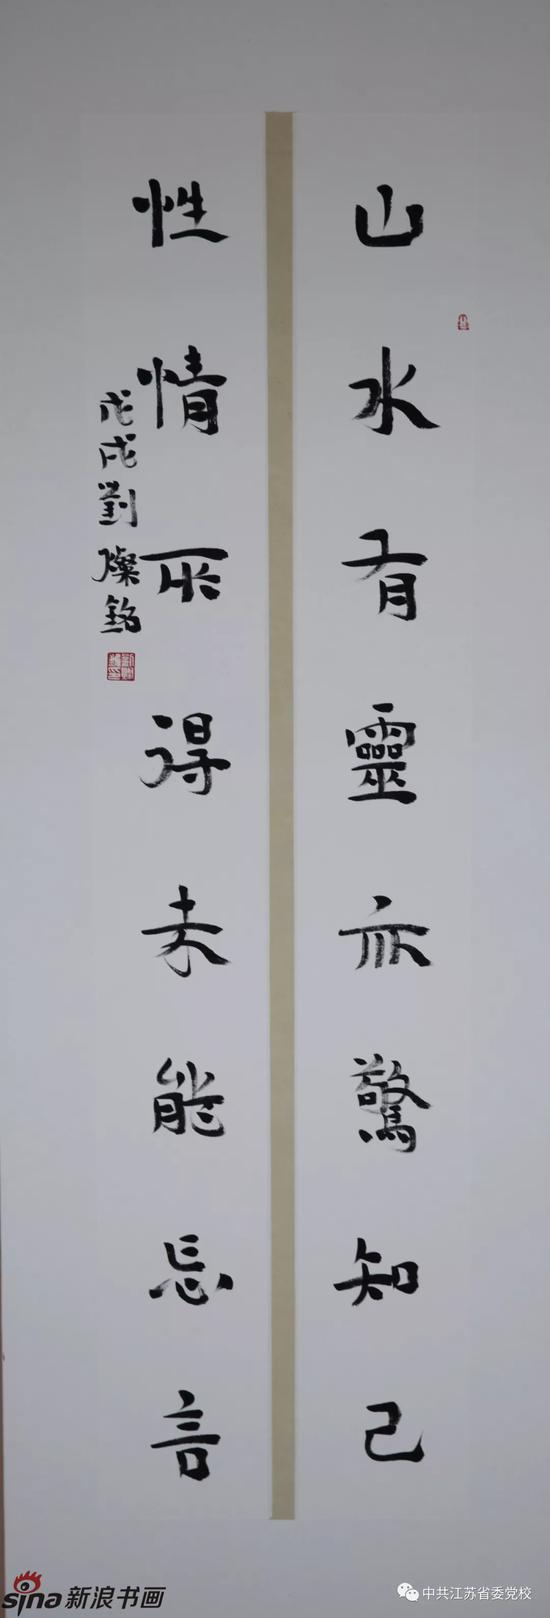 山水有靈亦驚知己
性情所得未能忘言
戊戌劉燦銘
sina新浪书画
中共江苏省委党校